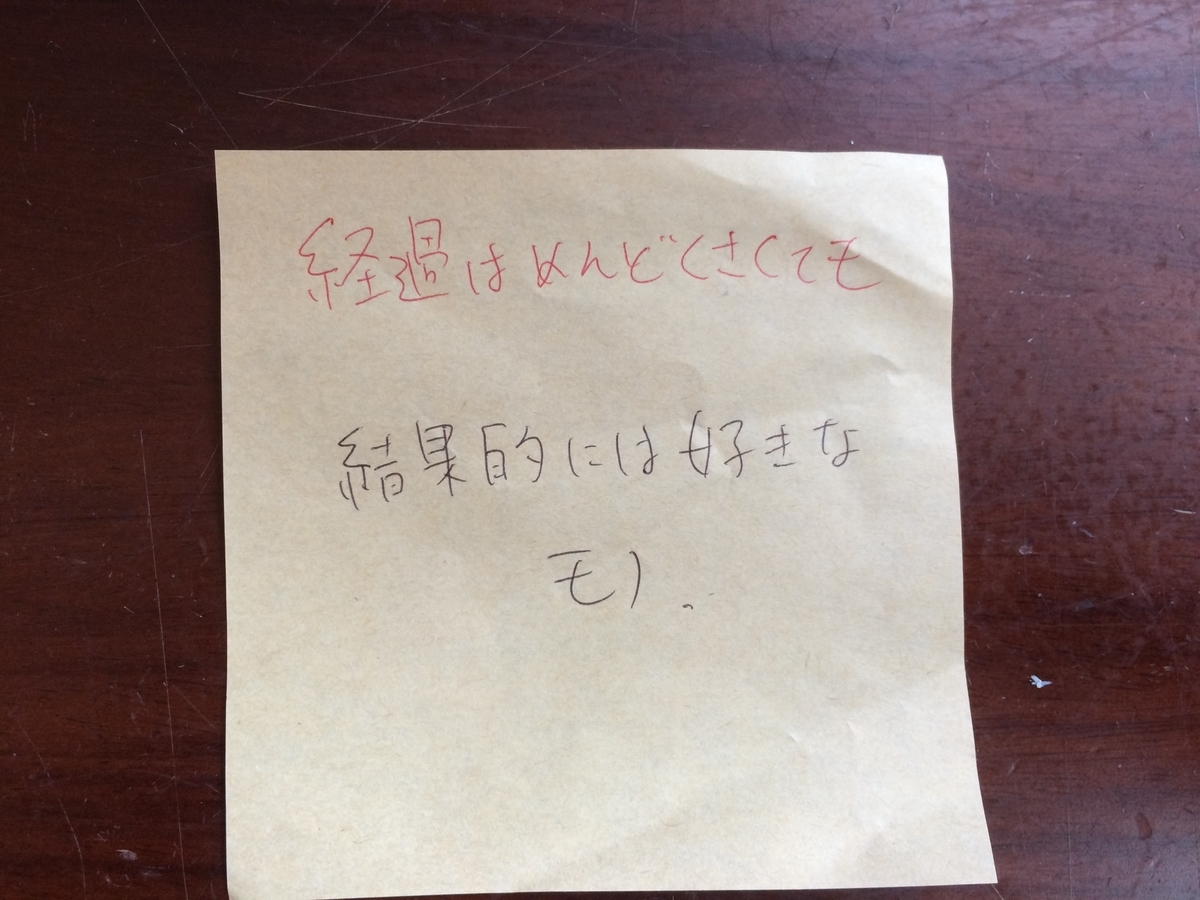 経過はめんどくさくても
結果的には好きな
モノ。